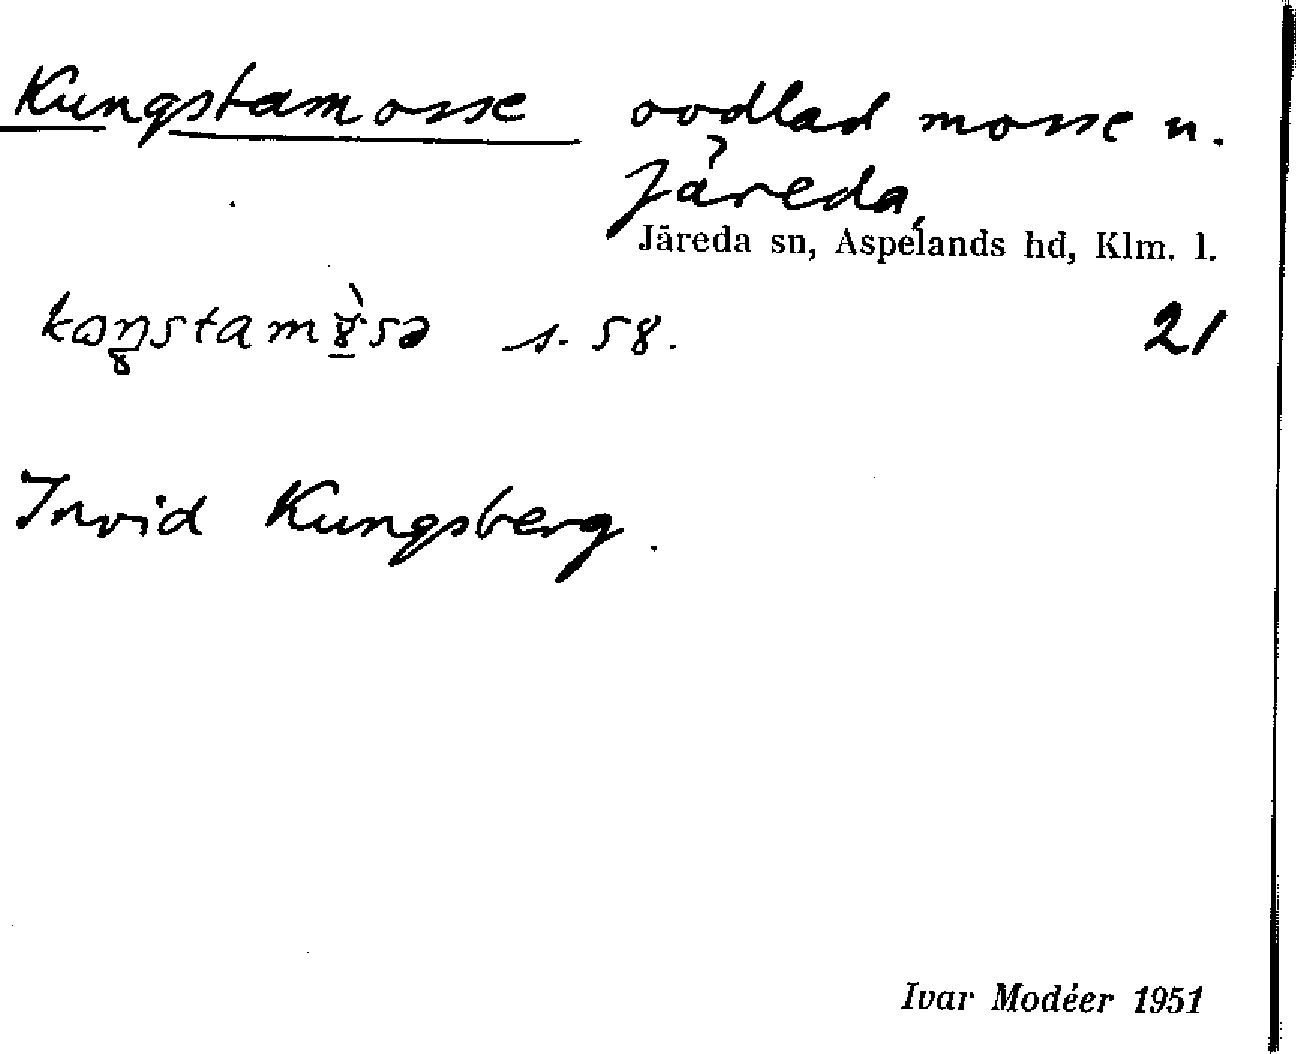 Kungstamosse oodlad mosse u.
Järeda,
Järeda sn, Aspelands hd, Klm. l.
s. 58. 21
Invid Kungsberg.
Ivar Modéer 1951